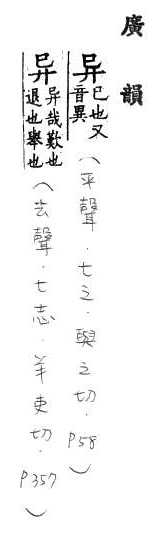 廣韻
异 已也又音異(平聲.七之.與之切.P58)
异 异哉歎也退也舉也(去聲.七志.羊吏切.P357)